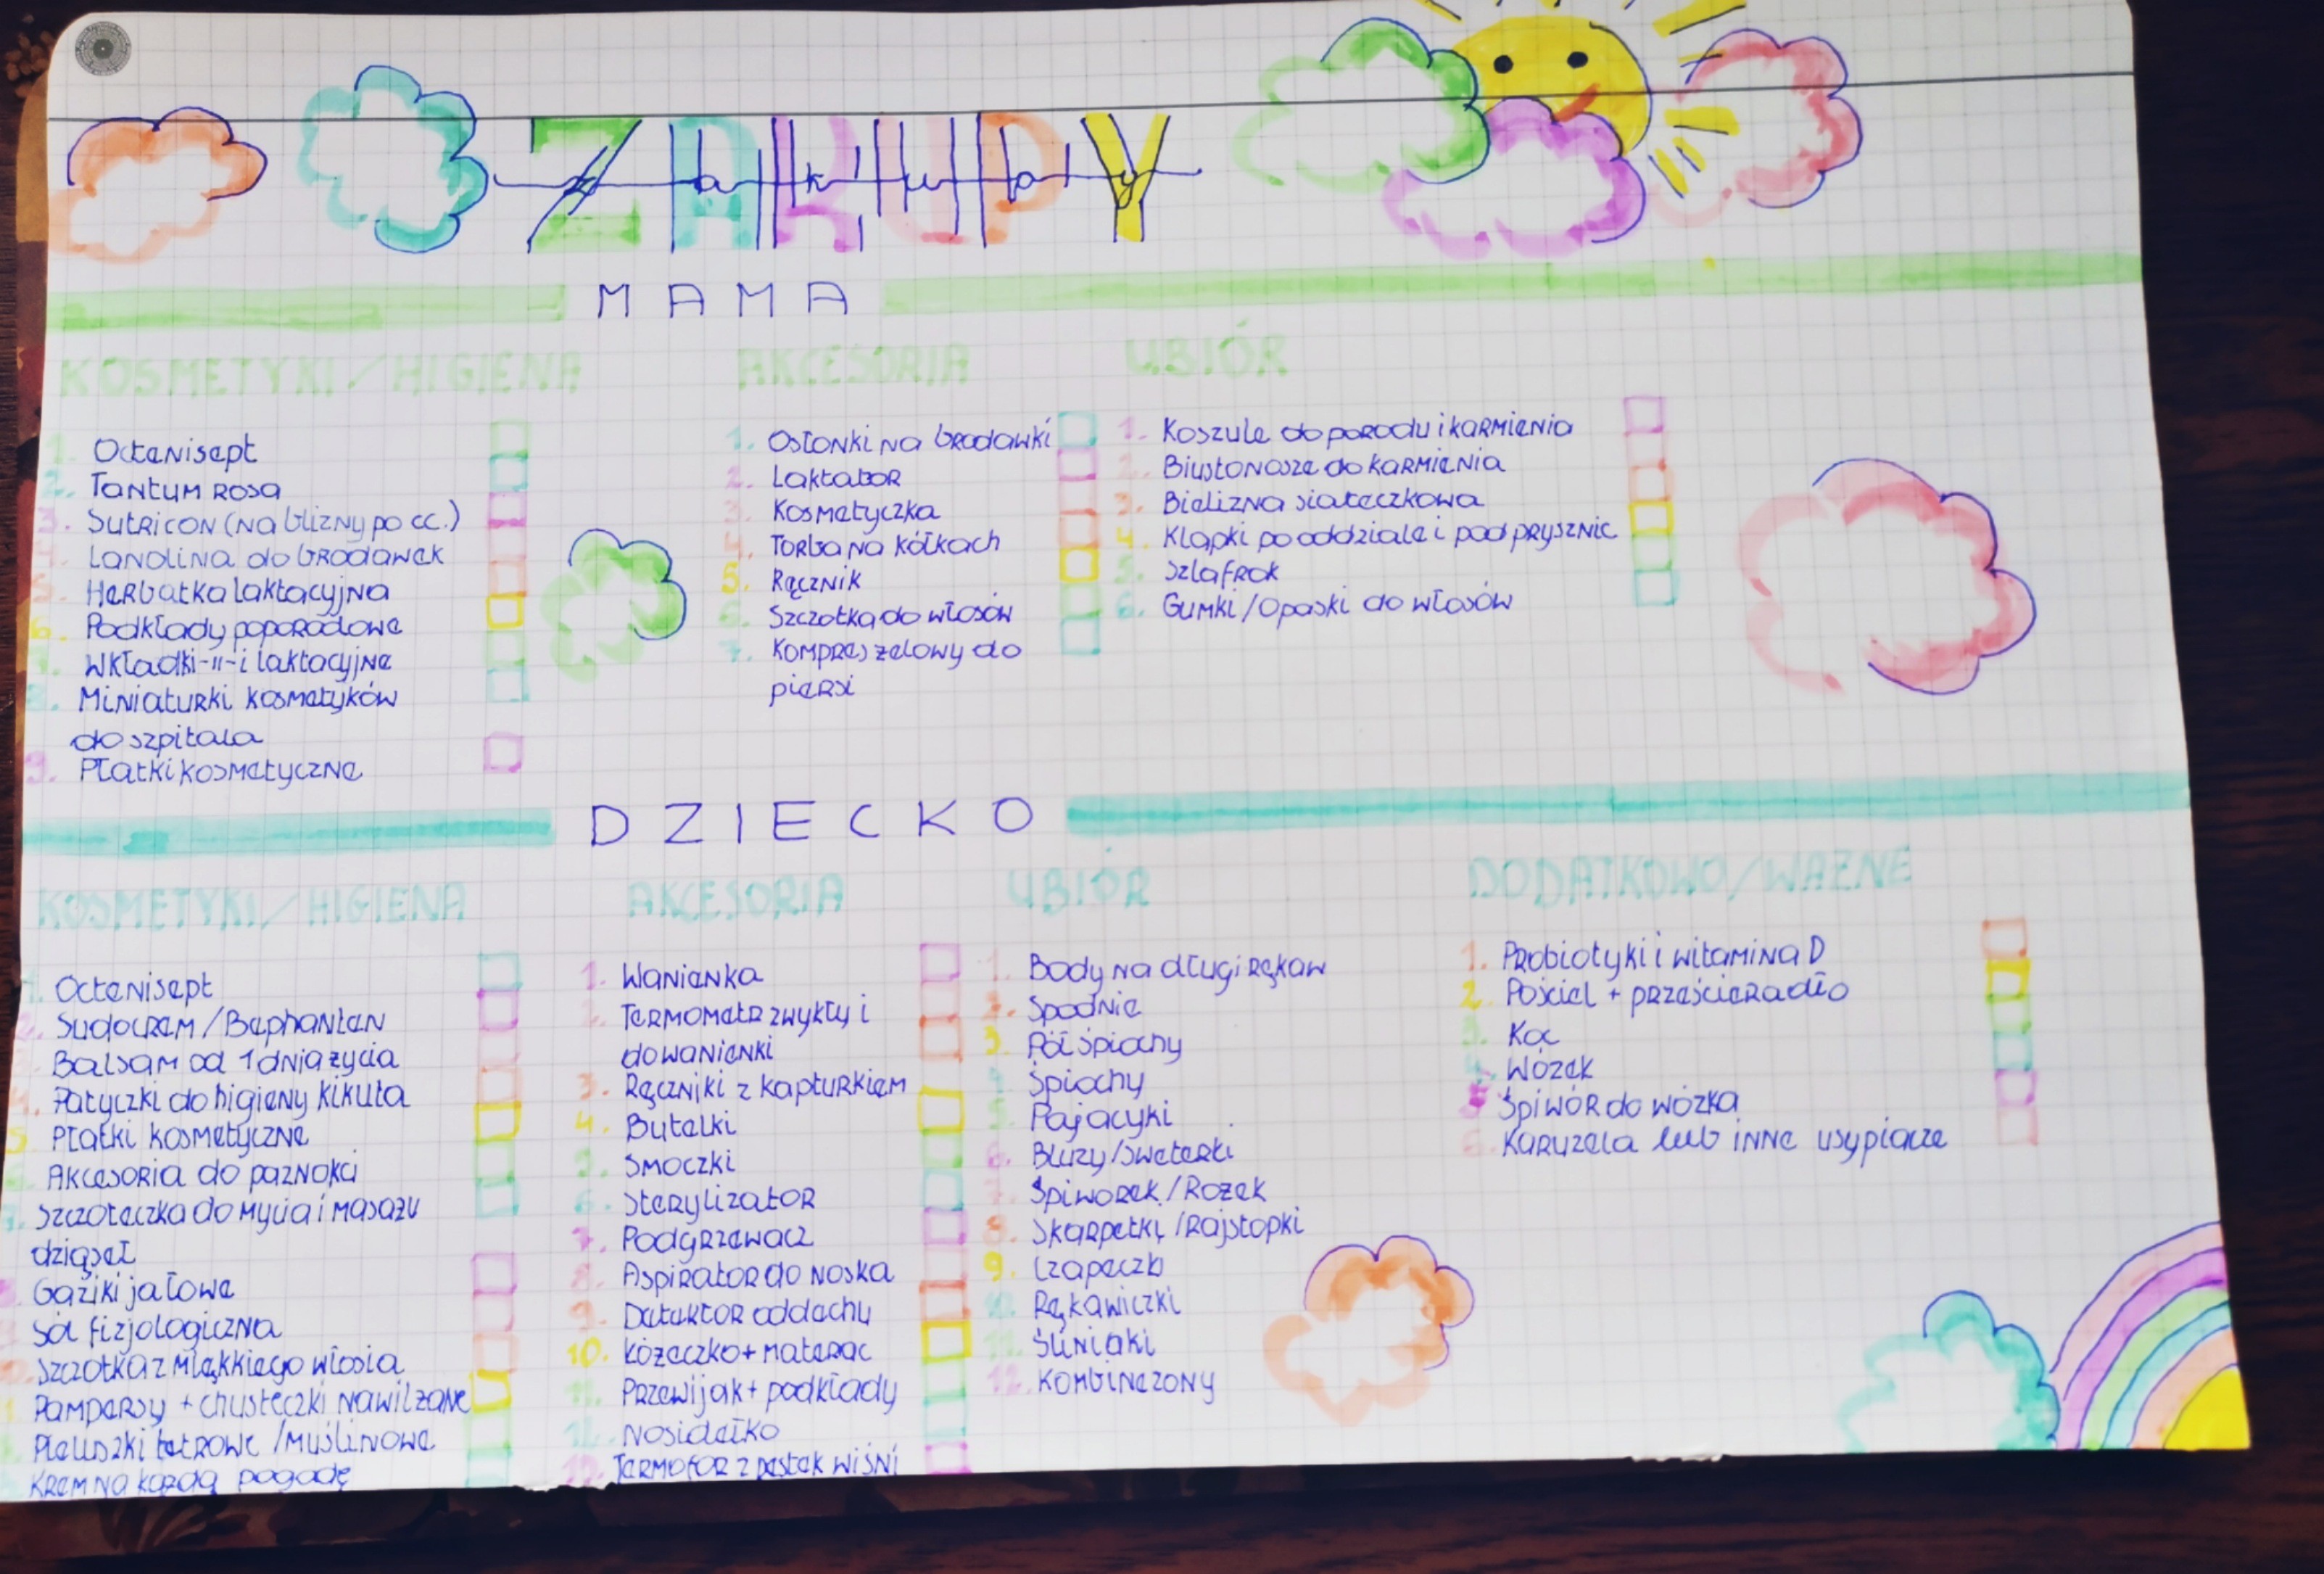 ZAKUPY
Zakupy
MAMA
KOSMETYKI/HIGIENA
1. Octenisept
2. Tantum rosa
3. Sutricon (na blizny po cc.)
4. Lanolina do brodawek
5. Herbatka laktacyjna
6. Podkłady poporodowe
7. Wkładki -II- i laktacyjne
8. Miniaturki kosmetyków
do szpitala
9. Płatki kosmetyczne
AKCESORIA
1. Osłonki na brodawki
2. Laktator
3. Kosmetyczka
4. Torba na kółkach
5. Ręcznik
6. Szczotka do włosów
7. Kompres żelowy do
piersi
UBIÓR
1. Koszule do porodu i karmienia
2. Biustonosze do karmienia
3. Bielizna siateczkowa
4. Klapki po oddziale i pod prysznic
5. Szlafrok
6. Gumki/Opaski do włosów
DZIECKO
KOSMETYKI/HIGIENA
1. Octenisept
2. Sudocrem/Bephanten
3. Balsam od 1 dnia życia
4. Patyczki do higieny kikuta
5 Płatki kosmetyczne
6 Akcesoria do paznokci
7. Szczoteczka do mycia i masażu
dziąseł
Gaziki jałowe
Sól fizjologiczna
Szczotka z miękkiego włosia
Pampersy + chusteczki nawilżane
Pieluszki tetrowe/muślinowe
Krem na każdą pogodę
AKCESORIA
1. Wanienka
2. Termometr zwykły i
do wanienki
3. Ręczniki z kapturkiem
4. Butelki
5. Smoczki
6. Sterylizator
7. Podgrzewacz
8. Aspirator do noska
9. Detektor oddechu
10. Łóżeczko + materac
11. Przewijak + podkłady
12. Nosidełko
13. Termofor z pestek wiśni
UBIÓR
1. Body na długi rękaw
2. Spodnie
3. Półśpiochy
4. Śpiochy
5. Pajacyki
6. Bluzy/sweterki
7. Śpiworek/Rożek
8. Skarpetki/Rajstopki
9. Czapeczki
10. Rękawiczki
11. Śliniaki
12. Kombinezony
DODATKOWO/WAŻNE
1. Probiotyki i witamina D
2. Pościel + prześcieradło
3. Koc
4. Wózek
5 Śpiwór do wózka
6. Karuzela lub inne usypiacze